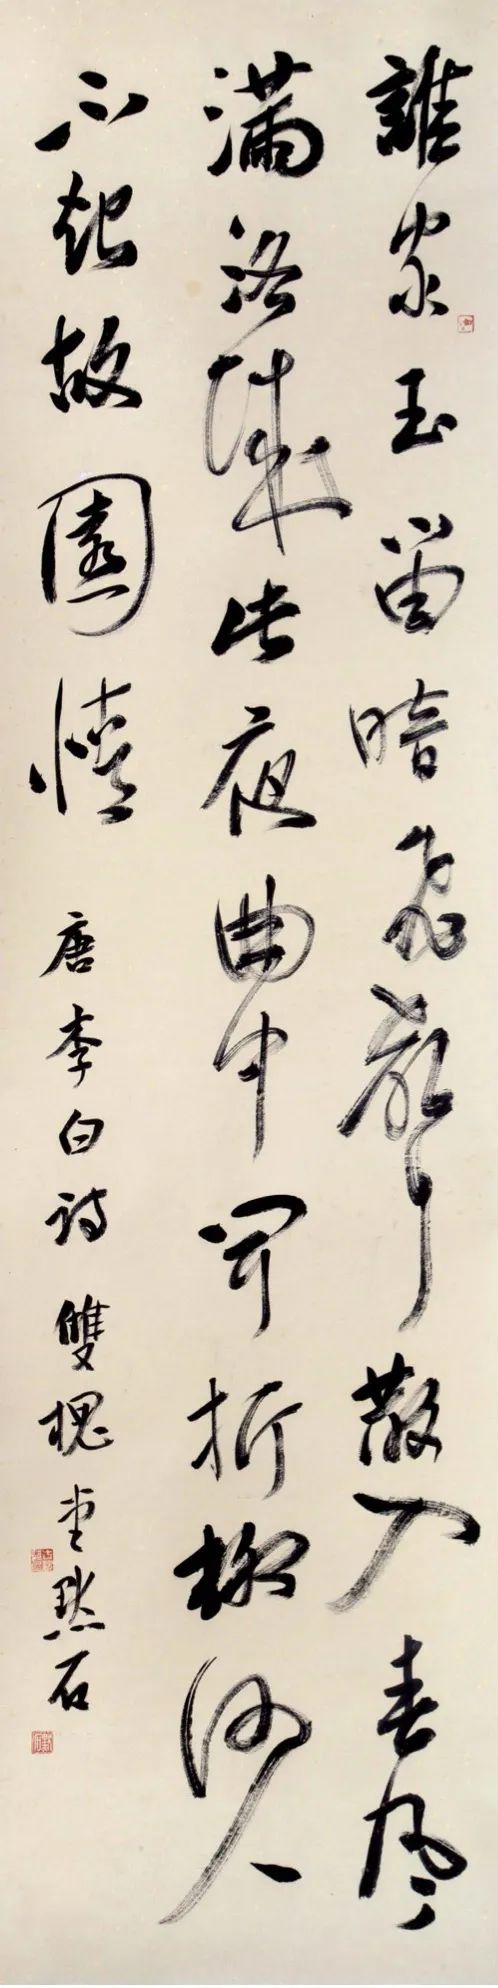 誰家玉笛暗飛聲散入春风
滿洛城此夜曲中闻折柳何人
不起故園情 唐李白诗 雙槐堂默石